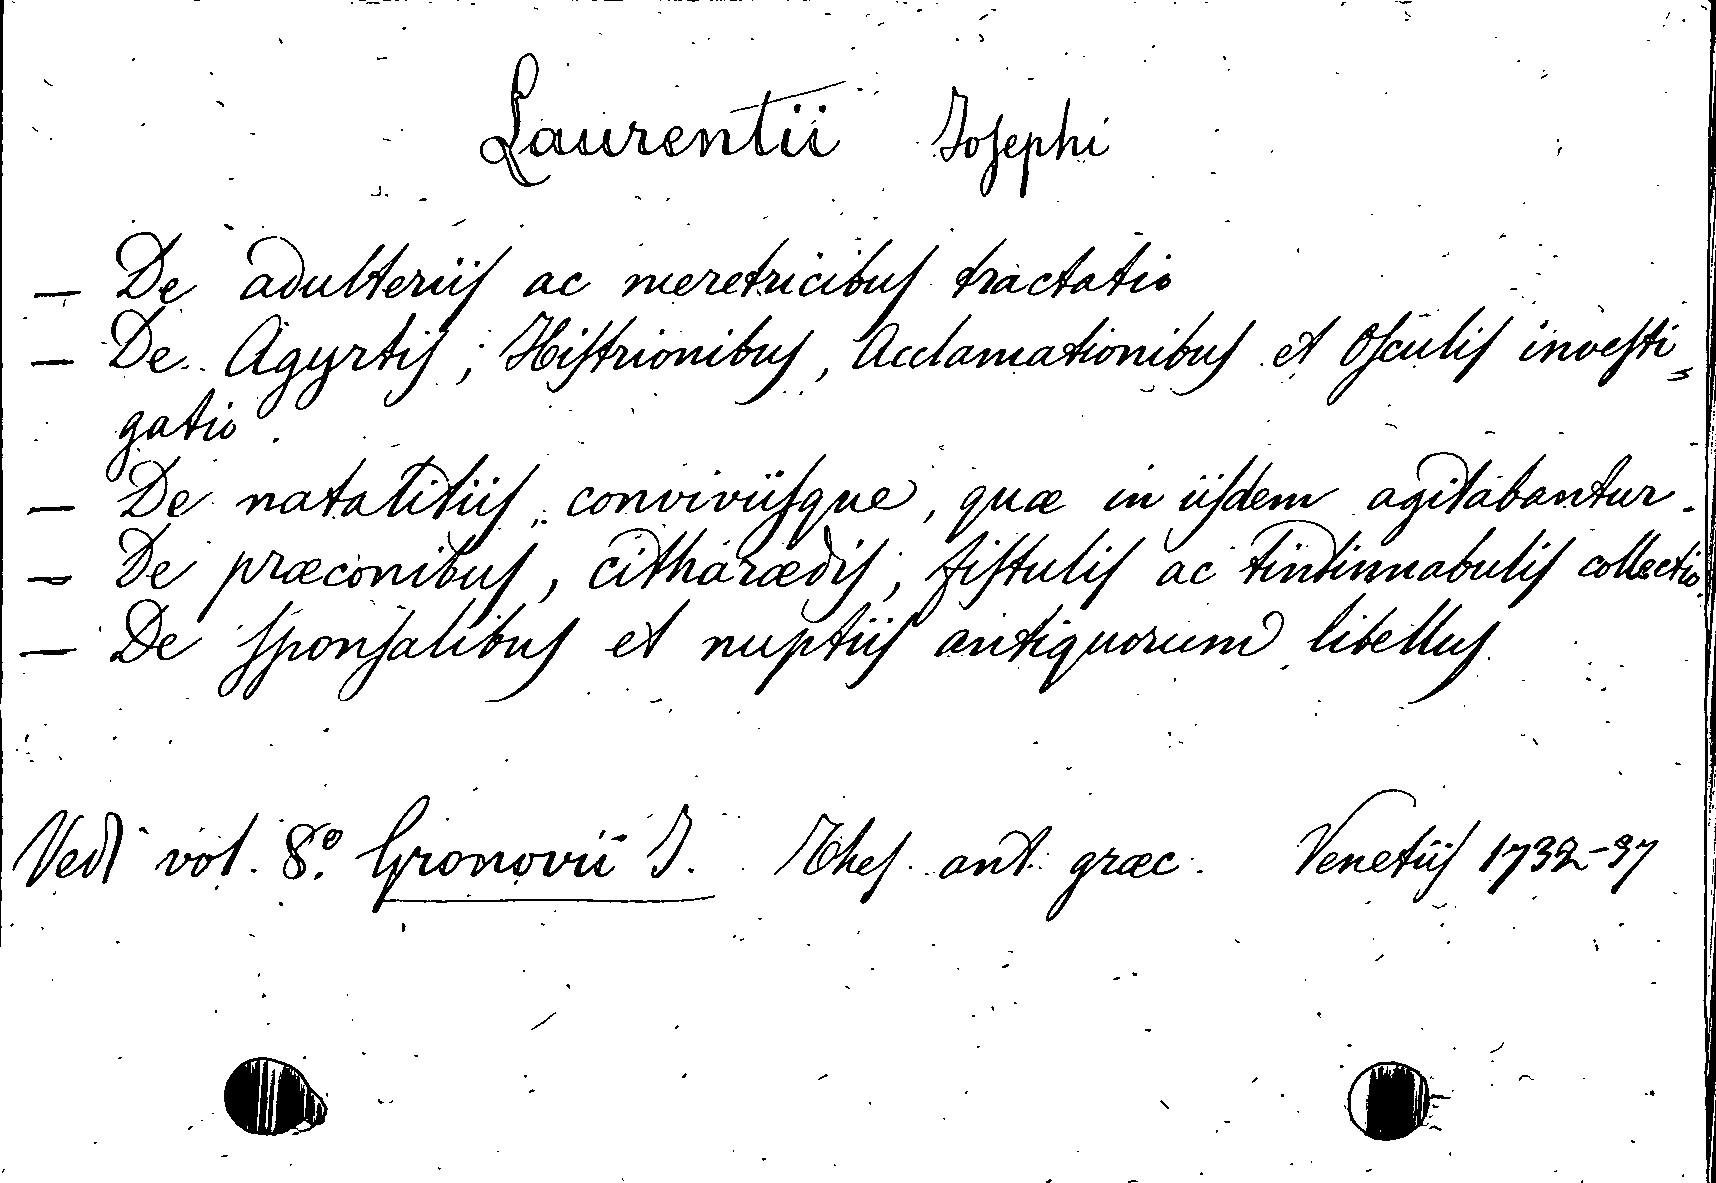 Laurentii Josephi
— De adulteriis ac meretricibus tractatio
— De Agyrtis, Histrionibus, Acclamationibus et Osculis investi=
gatio.
— De natalitiis, conviviisque, quæ in iisdem agitabantur.
— De præconibus, citharædis, fistulis ac tintinnabulis collectio.
— De sponsalibus et nuptiis antiquorum libellus.
Vedi vol. 8.º Gronovii J. Thes. ant. græc. Venetiis 1732-37